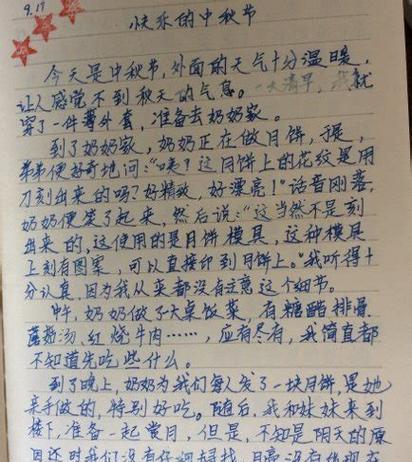 9.17
快乐的中秋节
今天是中秋节,外面的天气十分温暖,
让人感觉不到秋天的气息。一大清早,我就
穿了一件薄外套,准备去奶奶家。
到了奶奶家,奶奶正在做月饼,于是,
弟弟便好奇地问:“咦?这月饼上的花纹是用
刀刻出来的吗?好精致,好漂亮!”话音刚落,
奶奶便笑了起来,然后说:“这当然不是刻
出来的,这使用的是月饼模具,这种模具
上刻有图案,可以直接印到月饼上。”我听得十
分认真,因为我从来都没有注意这个细节。
中午,奶奶做了大桌饭菜,有糖醋排骨、
蘑菇汤、红烧牛肉……,应有尽有,我简直都
不知道先吃些什么。
到了晚上,奶奶为我们每人发了一块月饼,是她
亲手做的,特别好吃。随后,我和妹妹来到
楼下,准备一起赏月,但是,不知是阴天的原
因还是我们没有仔细寻找,月亮没有出现在